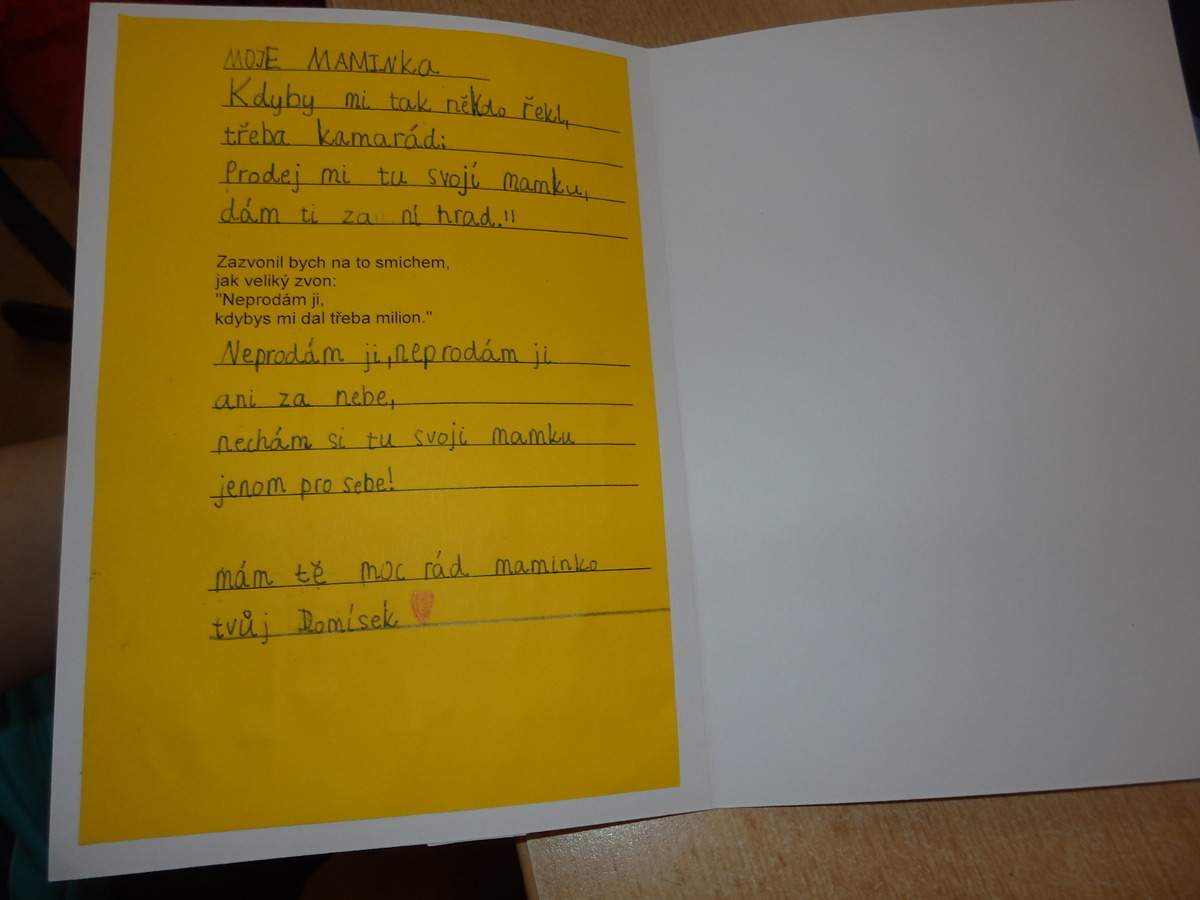 MOJE MAMINKA
Kdyby mi tak někdo řekl,
třeba kamarád:
Prodej mi tu svojí mamku,
dám ti za ní hrad.!!
Zazvonil bych na to smichem,
jak veliký zvon:
"Neprodám ji,
kdybys mi dal třeba milion."
Neprodám ji,neprodám ji
ani za nebe,
nechám si tu svoji mamku
jenom pro sebe!
mám tě moc rád maminko
tvůj Domísek